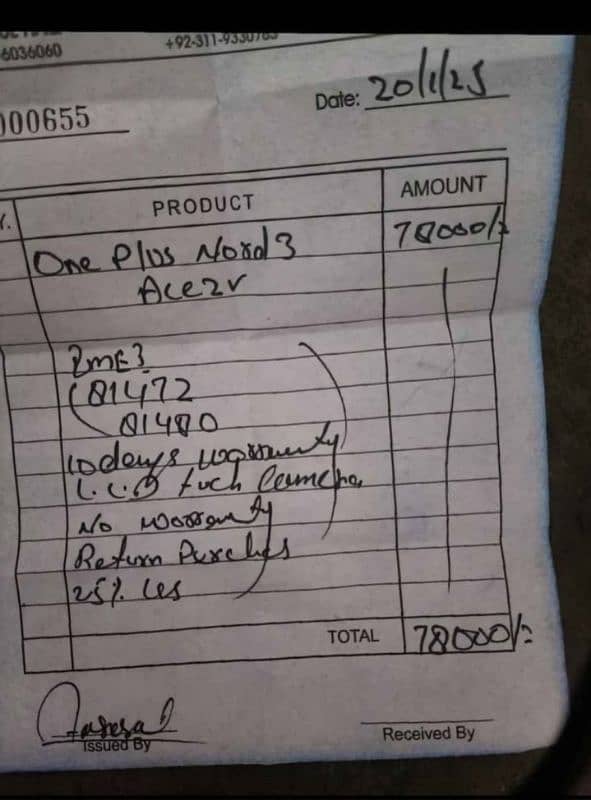 6036060
+92-311-9330785
Date: 20/1/25
000655
PRODUCT
AMOUNT
One Plus Nord 3
78000/-
Ace2v
81472
81480
10 days warranty
L.C.D tuch Camera
No warranty
Return Purches
25% les
TOTAL 78000/-
Issued By
Received By